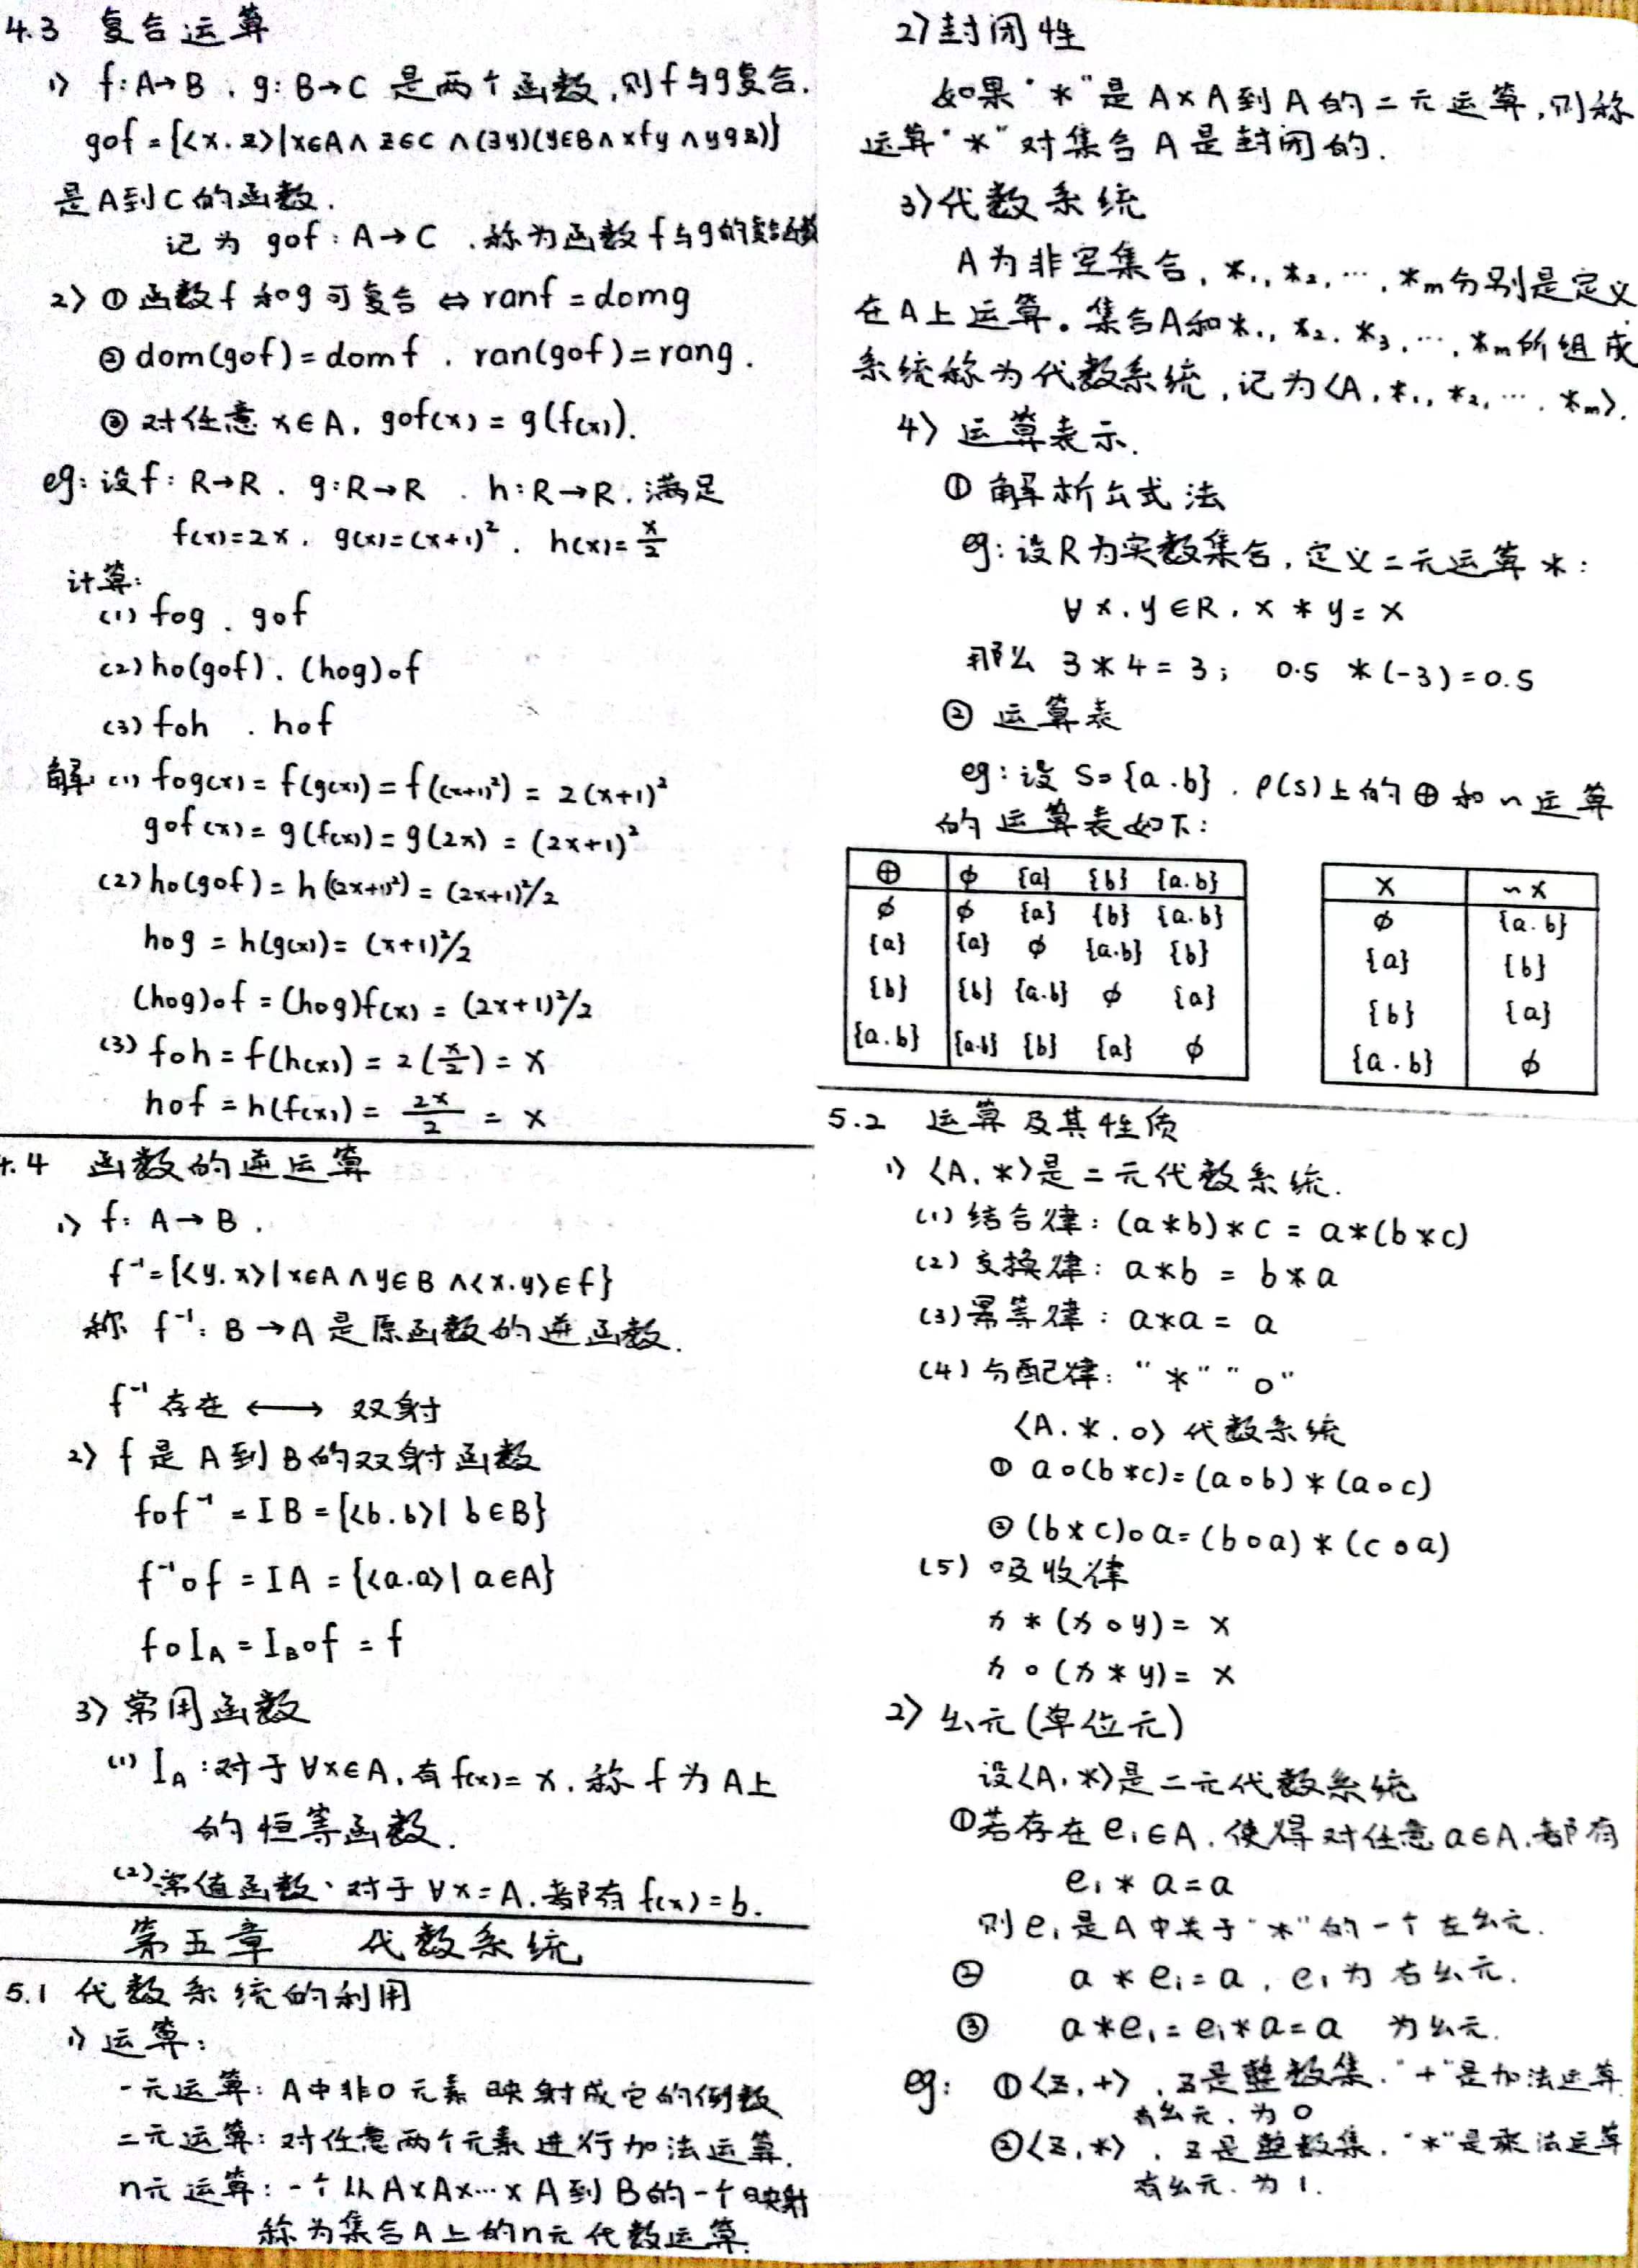 4.3 复合运算
1) f:A→B，g:B→C 是两个函数,则f与g复合.
gof={<x.z>|x∈A∧z∈C∧(∃y)(y∈B∧xfy∧ygz)}
是A到C的函数.
记为 gof:A→C .称为函数f与g的复合函数
2) ① 函数f和g可复合 ⇔ ranf=domg
② dom(gof)=domf . ran(gof)=rang.
③ 对任意x∈A, gof(x)=g(f(x)).
eg:设f:R→R. g:R→R . h:R→R.满足
f(x)=2x. g(x)=(x+1)². h(x)=x/2
计算:
(1) fog . gof
(2) ho(gof). (hog)of
(3) foh . hof
解: (1) fog(x)=f(g(x))=f((x+1)²)=2(x+1)²
gof(x)=g(f(x))=g(2x)=(2x+1)²
(2) ho(gof)=h((2x+1)²)=(2x+1)²/2
hog=h(g(x))=(x+1)²/2
(hog)of=(hog)f(x)=(2x+1)²/2
(3) foh=f(h(x))=2(x/2)=x
hof=h(f(x))=2x/2=x
4.4 函数的逆运算
1) f:A→B.
f⁻¹={<y.x>|x∈A∧y∈B∧<x.y>∈f}
称 f⁻¹:B→A是原函数的逆函数.
f⁻¹存在 ⟷ 双射
2) f是A到B的双射函数
fof⁻¹=IB={<b.b>|b∈B}
f⁻¹of=IA={<a.a>|a∈A}
foI_A=I_Bof=f
3) 常用函数
(1) I_A:对于∀x∈A,有f(x)=x.称f为A上
的恒等函数.
(2) 常值函数、对于∀x=A.都有f(x)=b.
第五章 代数系统
5.1 代数系统的利用
1) 运算:
一元运算: A中非0元素映射成它的倒数
二元运算: 对任意两个元素进行加法运算.
n元运算: 一个从A×A×…×A到B的一个映射
称为集合A上的n元代数运算.
2) 封闭性
如果"*"是A×A到A的二元运算,则称
运算"*"对集合A是封闭的.
3) 代数系统
A为非空集合, *₁,*₂,…,*m分别是定义
在A上运算。集合A和*₁,*₂.*₃,…,*m所组成
系统称为代数系统,记为<A,*₁,*₂,…,*m>.
4) 运算表示.
① 解析公式法
eg:设R为实数集合,定义二元运算*:
∀x.y∈R. x*y=x
那么 3*4=3; 0.5*(-3)=0.5
② 运算表
eg:设S={a.b}.ρ(S)上的⊕和~运算
的运算表如下:
⊕ ϕ {a} {b} {a.b}
ϕ ϕ {a} {b} {a.b}
{a} {a} ϕ {a.b} {b}
{b} {b} {a.b} ϕ {a}
{a.b} {a.b} {b} {a} ϕ
X ~X
ϕ {a.b}
{a} {b}
{b} {a}
{a.b} ϕ
5.2 运算及其性质
1) <A,*>是二元代数系统.
(1) 结合律: (a*b)*c=a*(b*c)
(2) 交换律: a*b=b*a
(3) 幂等律: a*a=a
(4) 分配律: "*" "o"
<A.*.o> 代数系统
① ao(b*c)=(aob)*(aoc)
② (b*c)oa=(boa)*(coa)
(5) 吸收律
x*(xoy)=x
xo(x*y)=x
2) 幺元(单位元)
设<A,*>是二元代数系统
①若存在e₁∈A.使得对任意a∈A.都有
e₁*a=a
则e₁是A中关于"*"的一个左幺元.
② a*e₁=a, e₁为右幺元.
③ a*e₁=e₁*a=a 为幺元.
eg: ①<Z,+>，Z是整数集."+"是加法运算
有幺元.为0
②<Z,*>，Z是整数集."*"是乘法运算
有幺元.为1.